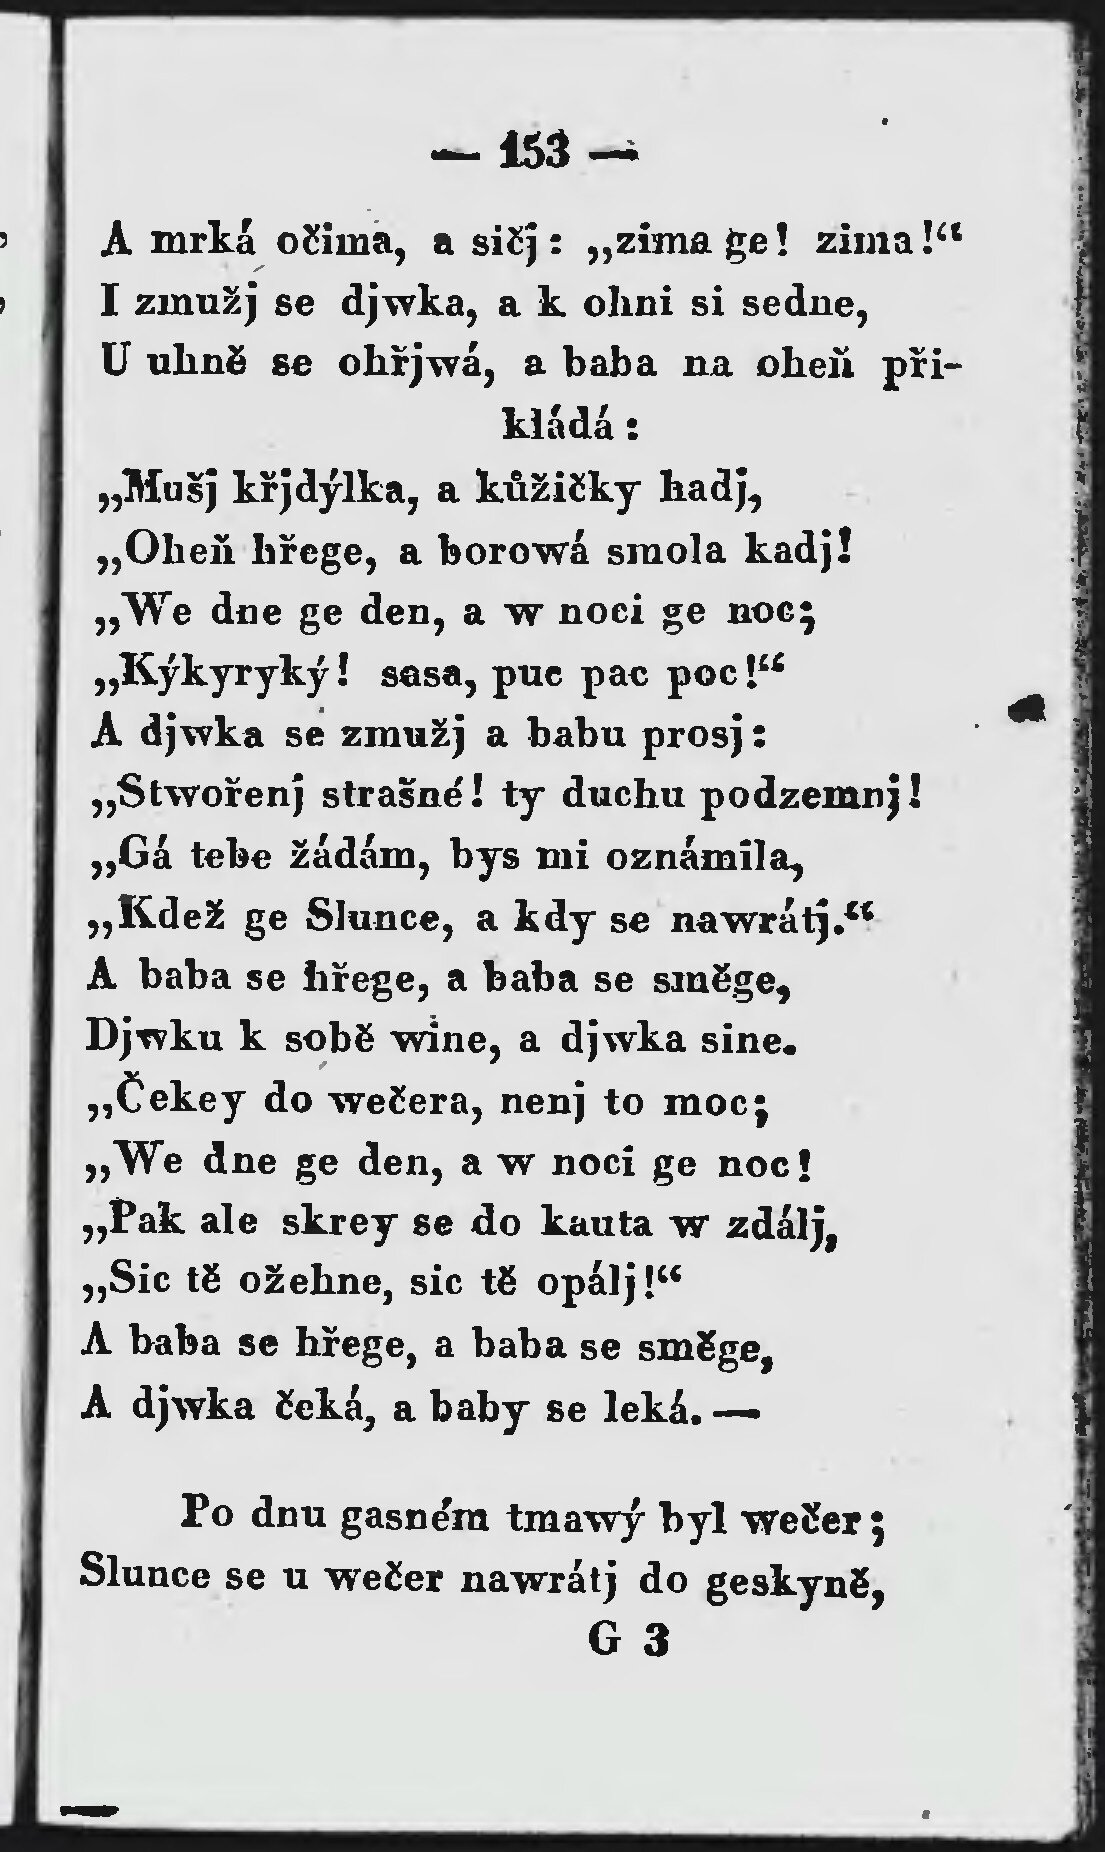 — 153 —
A mrká očima, a sičj: „zima ge! zima!“
I zmužj se djwka, a k ohni si sedne,
U uhně se ohřjwá, a baba na oheň při-
kládá:
„Mušj křjdýlka, a kůžičky hadj,
„Oheň hřege, a borowá smola kadj!
„We dne ge den, a w noci ge noc;
„Kýkyryký! sasa, puc pac poc!“
A djwka se zmužj a babu prosj:
„Stwořenj strašné! ty duchu podzemnj!
„Gá tebe žádám, bys mi oznámila,
„Kdež ge Slunce, a kdy se nawrátj.“
A baba se hřege, a baba se směge,
Djwku k sobě wine, a djwka sine.
„Čekey do wečera, nenj to moc;
„We dne ge den, a w noci ge noc!
„Pak ale skrey se do kauta w zdálj,
„Sic tě ožehne, sic tě opálj!“
A baba se hřege, a baba se směge,
A djwka čeká, a baby se leká. —
Po dnu gasném tmawý byl wečer;
Slunce se u wečer nawrátj do geskyně,
G 3